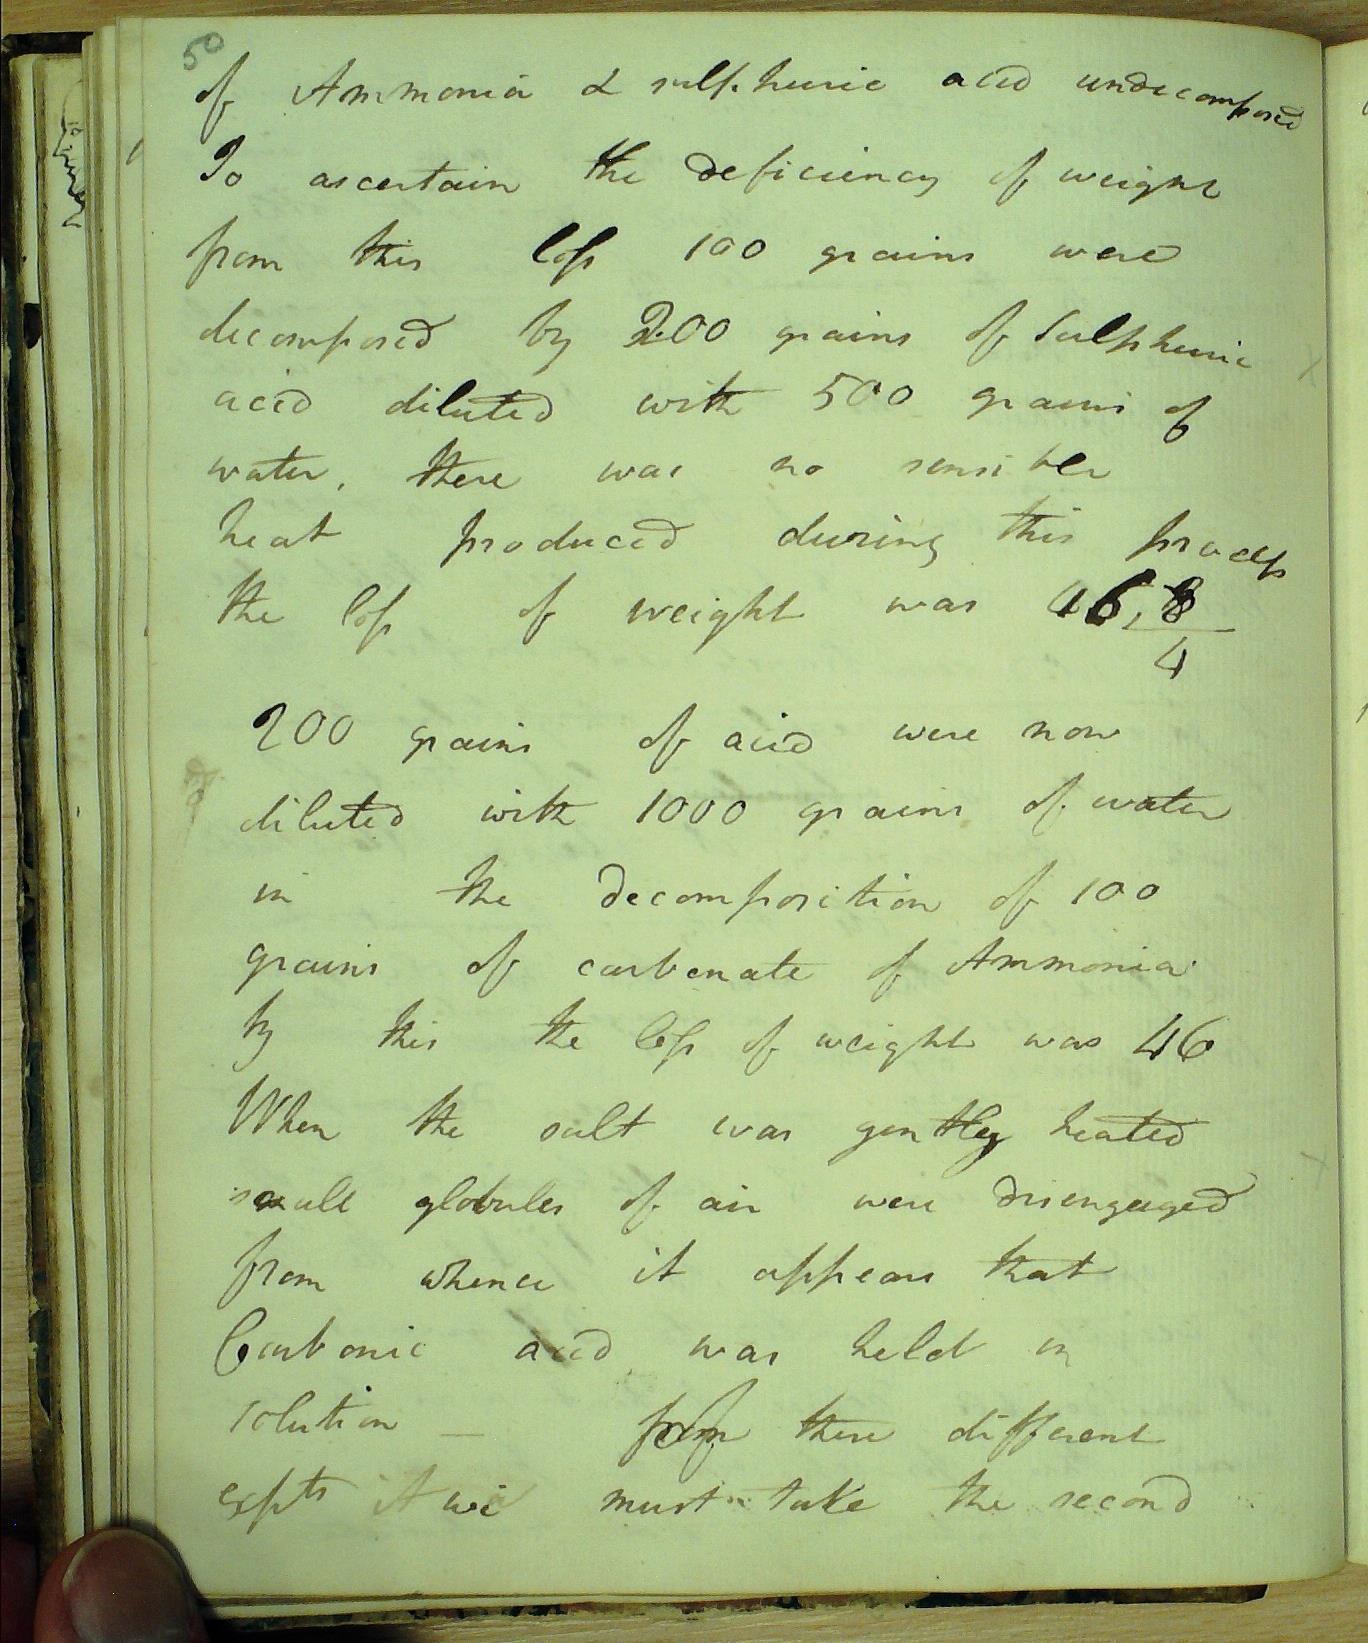 50
of Ammonia & sulphuric acid undecomposed
To ascertain the deficiency of weight
from this loss 100 grains were
decomposed by 200 grains of Sulphuric
acid diluted with 500 grains of
water, there was no sensible
heat produced during this process
the loss of weight was 46,8
4
200 grains of acid were now
diluted with 1000 grains of water
in the decomposition of 100
grains of carbonate of Ammonia
by this the loss of weight was 46
When the salt was gently heated
small globules of air were disengaged
from whence it appears that
Carbonic acid was held in
solution — from these different
expts we must take the second